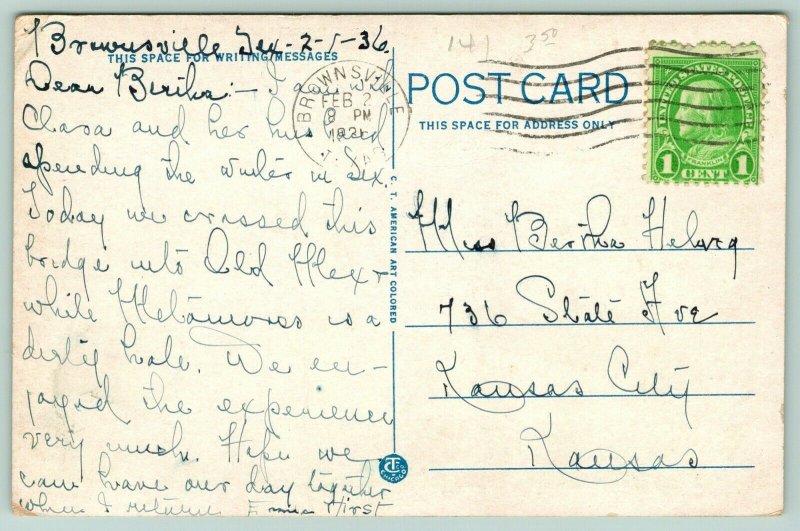 Brownsville Tex-2-1-36.
THIS SPACE FOR WRITING MESSAGES
Dear Bertha:- I am with
Clara and her husband
spending the winter in Tex.
Today we crossed this
bridge into Old Mex-
while Matamoros is a
dirty hole. We en-
joyed the experience
very much. Hope we
can have our day together
when I return Emma Hirst
C. T. AMERICAN ART COLORED
CT CHICAGO
141 3.50
BROWNSVILLE
FEB 2
8 PM
POST CARD
THIS SPACE FOR ADDRESS ONLY
UNITED STATES POSTAGE
FRANKLIN
1 CENT 1
Miss Bertha Helwig
736 State Ave
Kansas City
Kansas